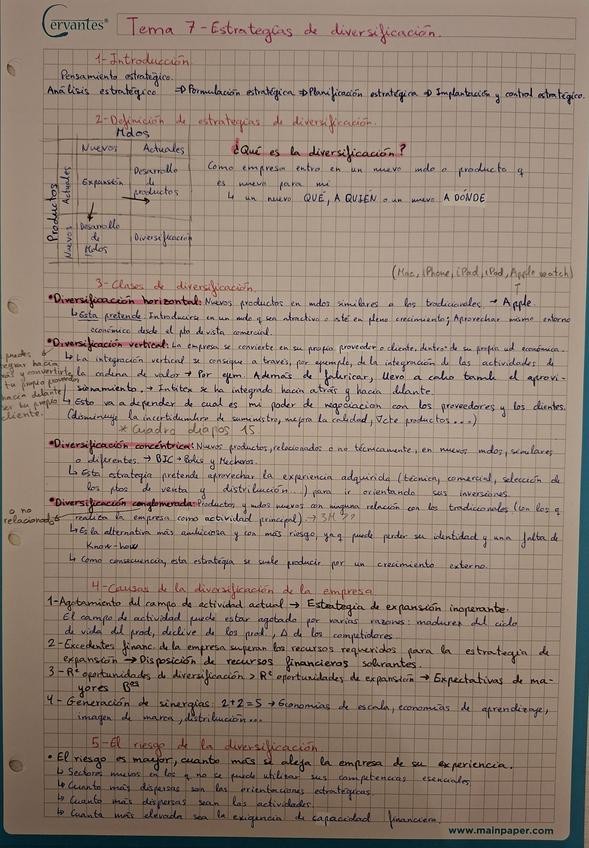 Cervantes®
Tema 7 - Estrategias de diversificación.
1- Introducción
Pensamiento estratégico.
Análisis estratégico ⇒ Formulación estratégica ⇒ Planificación estratégica ⇒ Implantación y control estratégico.
2- Definición de estrategias de diversificación.
Mdos
Nuevos Actuales
Productos
Actuales
Expansión
Desarrollo de productos
Nuevos
Desarrollo de Mdos
Diversificación
¿Qué es la diversificación?
Como empresa entro en un nuevo mdo o producto q
es nuevo para mi
↳ un nuevo QUÉ, A QUIÉN o un nuevo A DÓNDE
(Mac, iPhone, iPad, iPod, Apple watch)
3- Clases de diversificación.
*Diversificación horizontal: Nuevos productos en mdos similares a los tradicionales → Apple.
↳ Esta pretende: Introducirse en un mdo q sea atractivo o esté en pleno crecimiento; Aprovechar mismo entorno
económico desde el pto de vista comercial.
*Diversificación vertical: La empresa se convierte en su propio proveedor o cliente, dentro de su propia ud económica.
↳ La integración vertical se consigue a través, por ejemplo, de la integración de las actividades de
la cadena de valor → Por ejm. Además de fabricar, llevo a cabo también el aprovi-
sionamiento. → Inditex se ha integrado hacia atrás y hacia delante.
↳ Esto va a depender de cual es mi poder de negociación con los proveedores y los clientes.
(disminuye la incertidumbre de suministro, mejora la calidad, ∇cte productos...)
* Cuadro diapos 15
puedes
hacia
y convertirte
tu propio proveedor
hacia delante
ser tu propio
cliente.
*Diversificación concéntrica: Nuevos productos, relacionados o no técnicamente, en nuevos mdos, similares
o diferentes. → BIC → Bolis y Mecheros.
↳ Esta estrategia pretende aprovechar la experiencia adquirida (técnica, comercial, selección de
los ptos de venta y distribución...) para ir orientando sus inversiones.
*Diversificación conglomerada: Productos y mdos nuevos con ninguna relación con los tradicionales (con los q
realiza la empresa como actividad principal) → 3M ??
o no
relacionados
↳ Es la alternativa más ambiciosa y con más riesgo, ya q puede perder su identidad y una falta de
Know-how
↳ Como consecuencia, esta estrategia se suele producir por un crecimiento externo.
4- Causas de la diversificación de la empresa
1- Agotamiento del campo de actividad actual → Estrategia de expansión inoperante.
El campo de actividad puede estar agotado por varias razones: madurez del ciclo
de vida del prod, declive de los prod., Δ de los competidores.
2- Excedentes financ. de la empresa superan los recursos requeridos para la estrategia de
expansión → Disposición de recursos financieros sobrantes.
3- R^e oportunidades de diversificación > R^e oportunidades de expansión → Expectativas de ma-
yores B^os
4- Generación de sinergias: 2+2=5 → Economías de escala, economías de aprendizaje,
imagen de marca, distribución...
5- El riesgo de la diversificación
• El riesgo es mayor, cuanto más se aleja la empresa de su experiencia.
↳ Sectores nuevos en los q no se puede utilizar sus competencias esenciales
↳ Cuanto más dispersas son las orientaciones estratégicas.
↳ Cuanto más dispersas sean las actividades.
↳ Cuanta más elevada sea la exigencia de capacidad financiera.
www.mainpaper.com